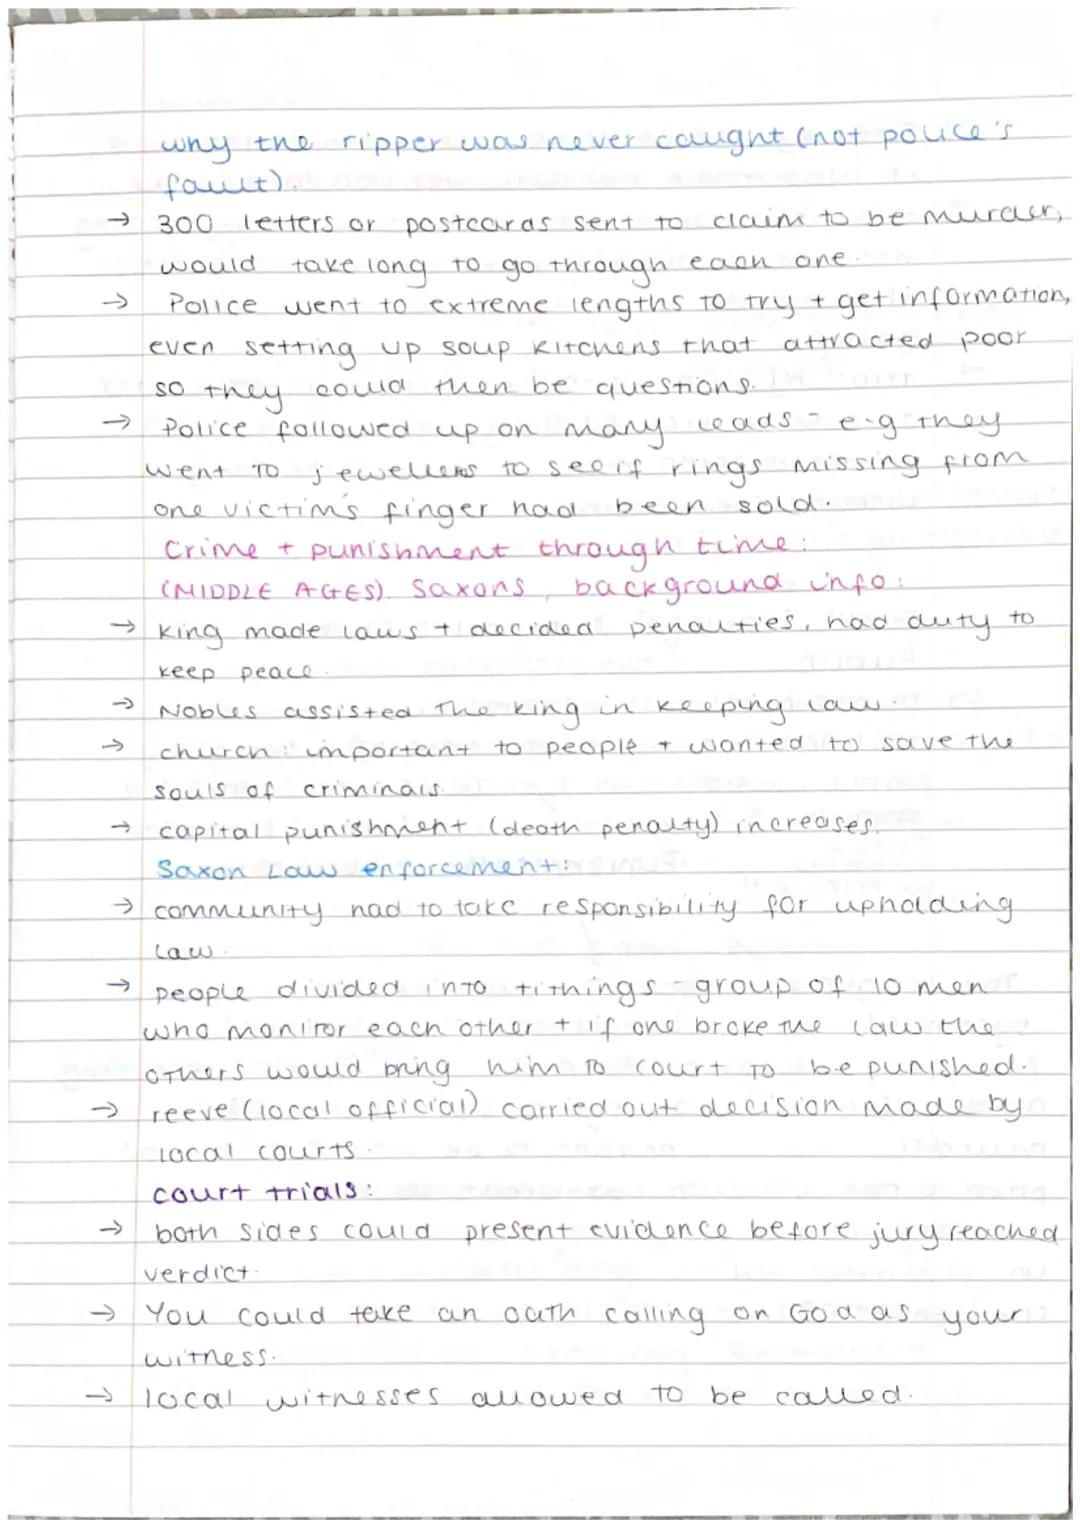 why the ripper was never caught (not police's
fault).
→ 300 letters or postcards sent to claim to be murder,
would take long to go through each one.
→ Police went to extreme lengths to try + get information,
even setting up soup kitchens that attracted poor
so they could then be questions.
→ Police followed up on many leads - e.g they
went to jewellers to see if rings missing from
one victim's finger had been sold.
Crime + punishment through time:
(MIDDLE AGES) Saxons, background info:
→ king made laws + decided penalties, had duty to
keep peace.
→ Nobles assisted the king in keeping law.
→ church: important to people + wanted to save the
souls of criminals.
→ capital punishment (death penalty) increases.
Saxon Law enforcement:
→ community had to take responsibility for upholding
law.
→ people divided into tithings - group of 10 men
who monitor each other + if one broke the law the
others would bring him to court to be punished.
→ reeve (local official) carried out decision made by
local courts.
court trials:
→ both sides could present evidence before jury reached
verdict.
→ You could take an oath calling on God as your
witness.
→ local witnesses allowed to be called.